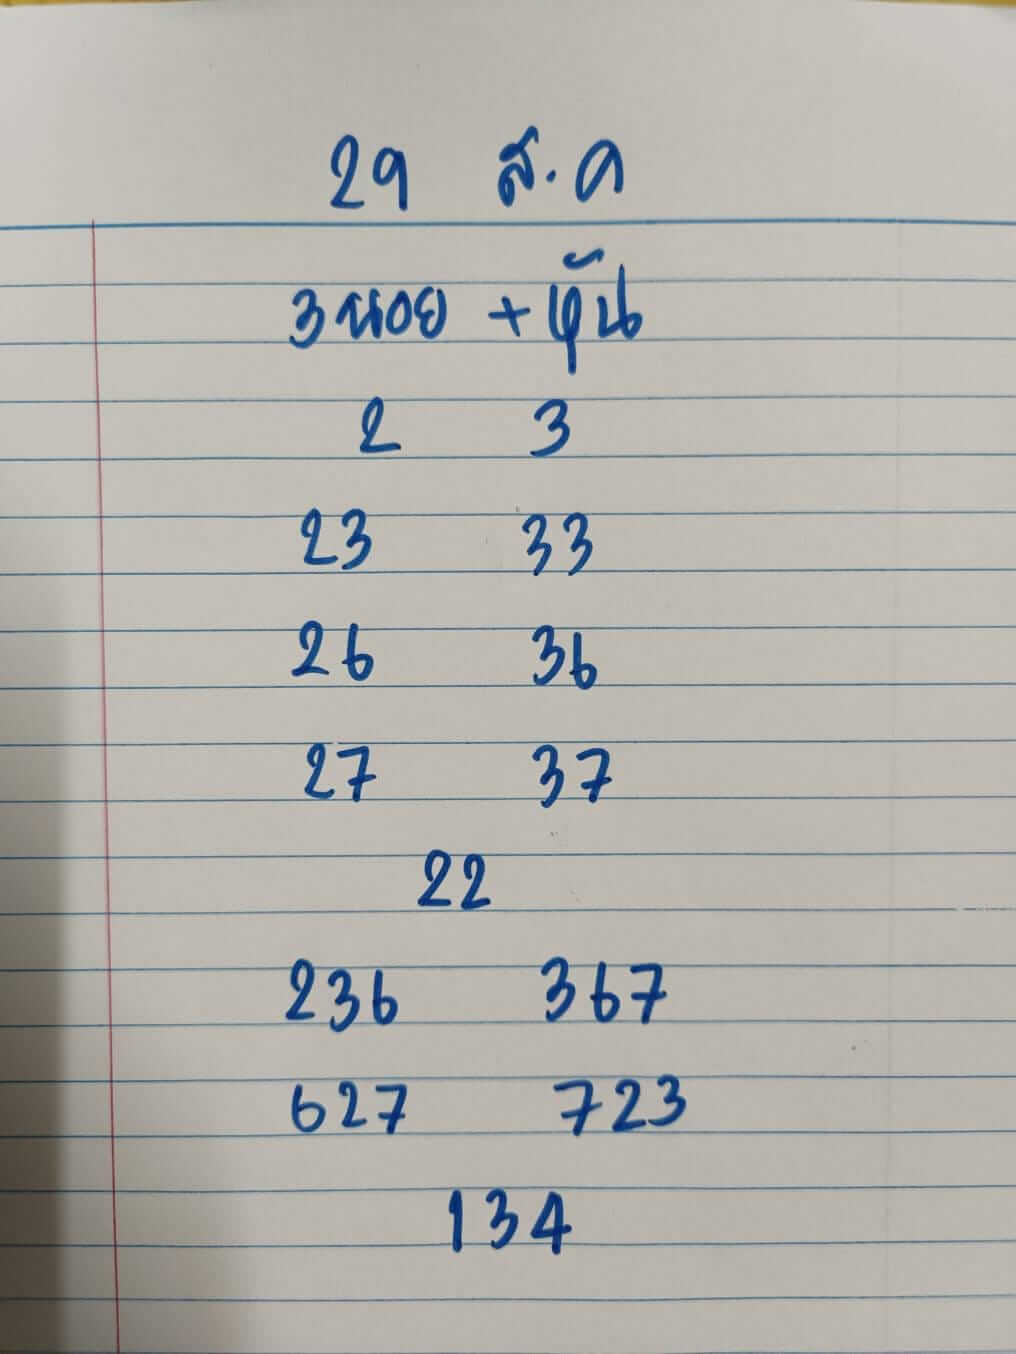 29 ส.ค
3 นอย + หุ้น
2 3
23 33
26 36
27 37
22
236 367
627 723
134